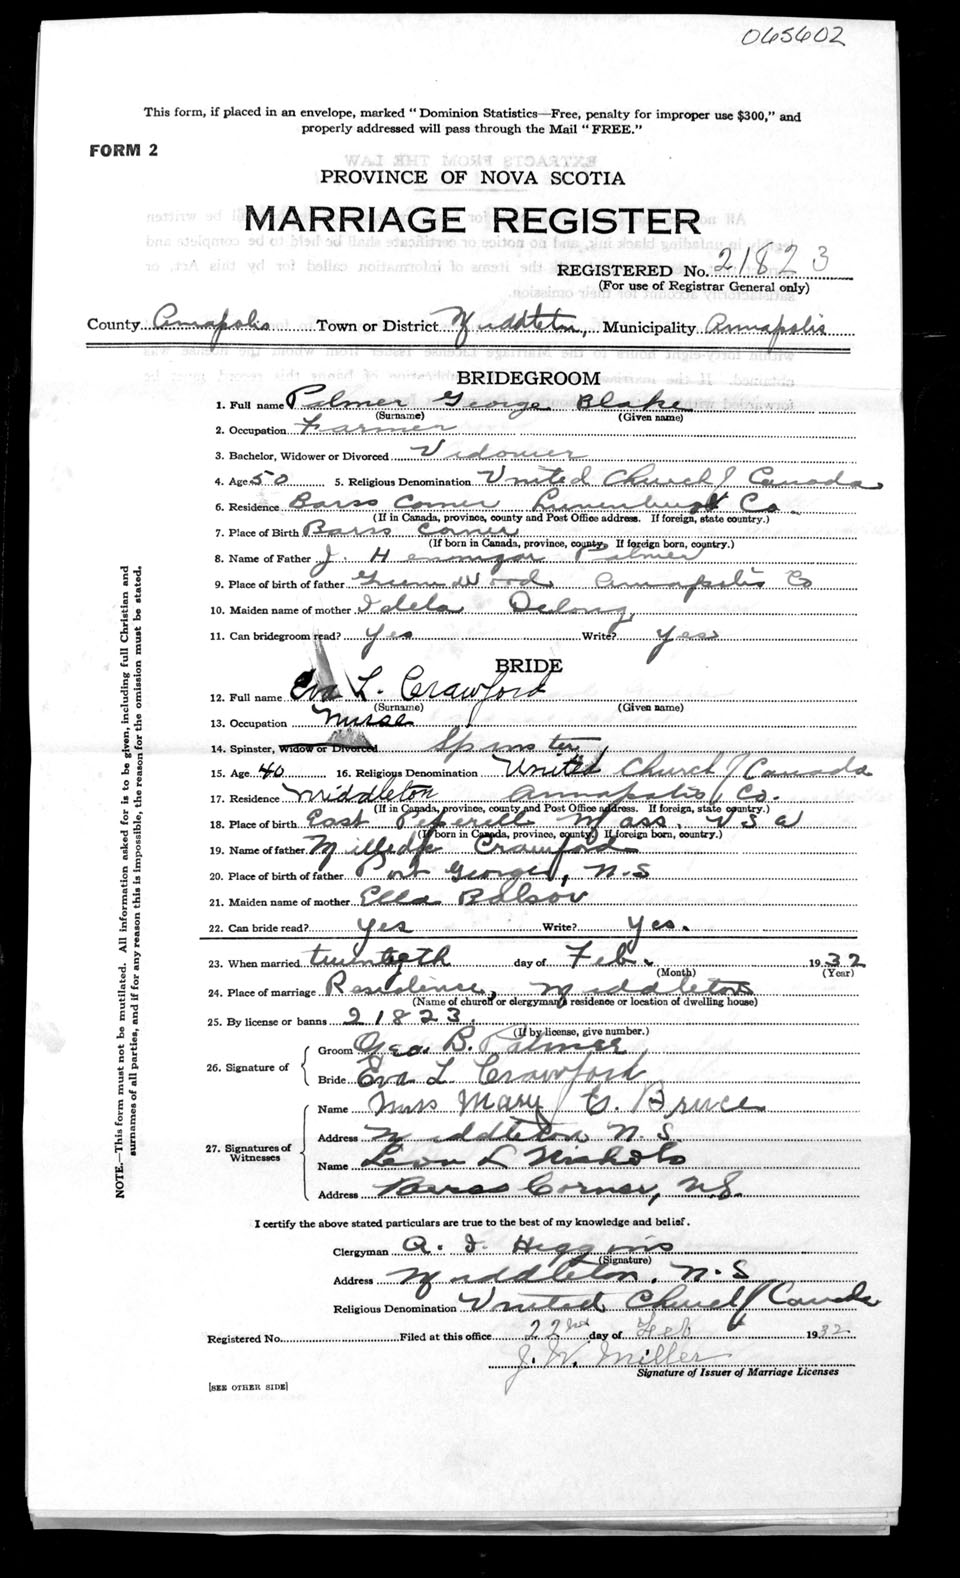 065602
This form, if placed in an envelope, marked "Dominion Statistics—Free, penalty for improper use $300," and
properly addressed will pass through the Mail "FREE."
FORM 2
PROVINCE OF NOVA SCOTIA
MARRIAGE REGISTER
REGISTERED No. 21823
(For use of Registrar General only)
County Annapolis Town or District Middleton, Municipality Annapolis
BRIDEGROOM
1. Full name Palmer George Blake
(Surname) (Given name)
2. Occupation Farmer
3. Bachelor, Widower or Divorced Widower
4. Age 50 5. Religious Denomination United Church of Canada
6. Residence Barss Corner Lunenburg Co.
(If in Canada, province, county and Post Office address. If foreign, state country.)
7. Place of Birth Barss Corner
(If born in Canada, province, county. If foreign born, country.)
8. Name of Father J. Palmer
9. Place of birth of father Greenwood Annapolis Co
10. Maiden name of mother Idela Delong
11. Can bridegroom read? Yes Write? Yes
BRIDE
12. Full name Eva L. Crawford
(Surname) (Given name)
13. Occupation Nurse
14. Spinster, Widow or Divorced Spinster
15. Age 40 16. Religious Denomination United Church of Canada
17. Residence Middleton Annapolis Co.
(If in Canada, province, county and Post Office address. If foreign, state country.)
18. Place of birth East Peperell Mass. U S A
(If born in Canada, province, county. If foreign born, country.)
19. Name of father Milledge Crawford
20. Place of birth of father Port George, N.S
21. Maiden name of mother Ella Balsor
22. Can bride read? Yes Write? Yes.
23. When married twentieth day of Feb. 1932
(Month) (Year)
24. Place of marriage Residense, Middleton
(Name of church or clergyman's residence or location of dwelling house)
25. By license or banns 21823.
(If by license, give number.)
26. Signature of
Groom Geo. B. Palmer
Bride Eva L Crawford
27. Signatures of Witnesses
Name Miss Mary E. Bruce
Address Middleton N.S
Name Leon L Nichols
Address Barss Corner, N.S.
I certify the above stated particulars are true to the best of my knowledge and belief.
Clergyman A. J. Higgins
(Signature)
Address Middleton, N.S
Religious Denomination United Church of Canada
Registered No. Filed at this office 22nd day of Feb 1932
J. W. Miller
Signature of Issuer of Marriage Licenses
[SEE OTHER SIDE]
NOTE.—This form must not be mutilated. All information asked for is to be given, including full Christian and
surnames of all parties, and if for any reason this is impossible, the reason for the omission must be stated.